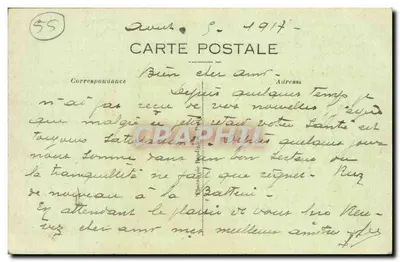 55
Aout 5 1917
CARTE POSTALE
Correspondance Adresse
Bien cher ami
Depuis quelques temps je
n'ai pas reçu de vos nouvelles
que malgré votre santé est
toujours Depuis quelques jours
nous somme dans un bon secteur ou
la tranquillité ne fait que régner. Rien
de nouveau à la Batterie
En attendant le plaisir de vous lire Rece-
vez cher ami mes meilleurs amitiés